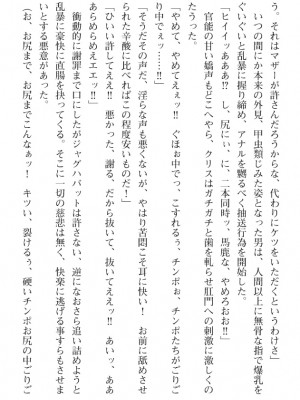 う。それはマザーが許さんだろうからな、代わりにケツをいただくというわけさ」
　いつの間にか本来の外見、甲虫類じみた姿となった男は、人間以上に無骨な指で爆乳を
ぐいぐいと乱暴に握り締め、アナルを嬲るべく抽送行為を開始した。
「ヒイイッああああ!?　し、尻にぃ、に、二本同時ッ、馬鹿な、やめろおお!!」
　官能の甘い嬌声もどこへやら、クリスはガチガチと歯を軋らせ肛門への刺激に激しくの
たうった。
「やめて、やめてえぇッ!!　ぐほぉ中で、こすれるぅ、チンポぉ、チンポたちがごりご
り中でぇッ……!!」
「そうだその声だ、淫らな声も悪くないが、やはり苦悶こそ耳に快い！　お前に舐めさせ
られた辛酸に比べればこの程度安いものだ！」
「ひいい許してえぇ!!　悪かった、謝る、だから抜いて、抜いてえぇッ!!　あいッ、ああ
あらめらめえエエッ!!」
　衝動的に謝罪まで口にしたがジャグハバットは許さない、逆になおさら追い詰めようと
乱暴に豪快に直腸を抉ってくる。そこに一切の慈悲は無く、快楽に逃げる事すらもさせま
いとする悪意があった。
（お、お尻まで、お尻までこんなぁッ！　キツい、裂けるぅ、硬いチンポお尻の中ごりご